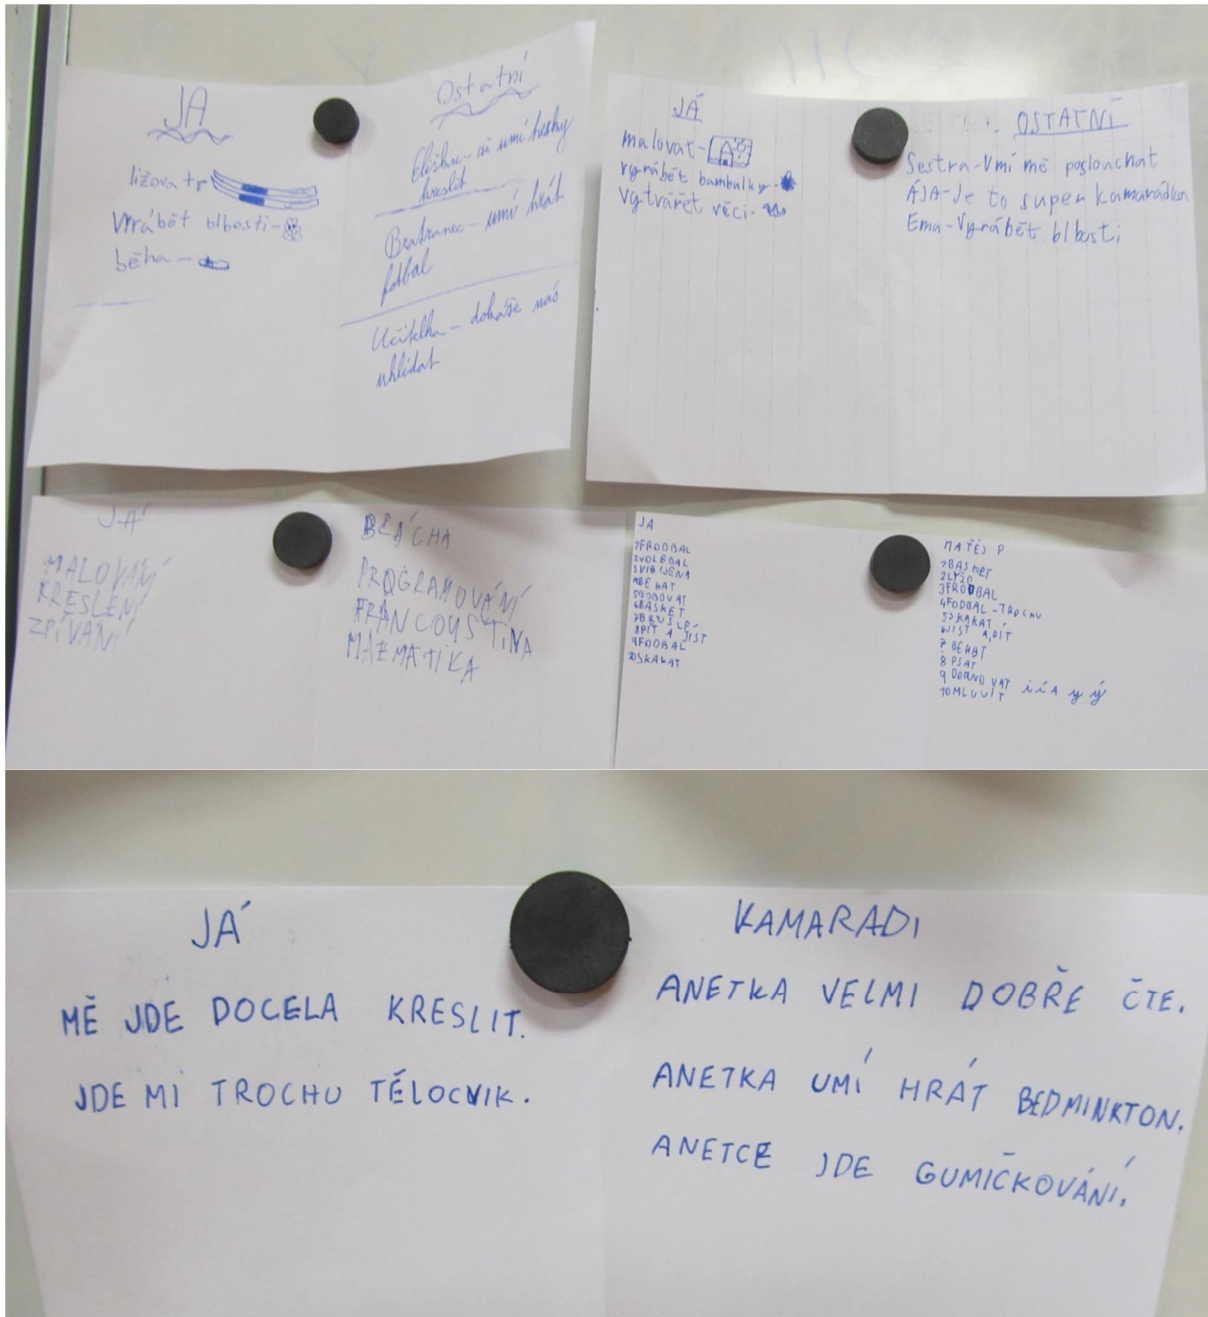 JÁ
ližova
Vyrábět blbosti-
běha-
Ostatní
Eliška- umí hezky
kreslit
Bratranec- umí hrát
fotbal
Učitelka- dokáže nás
uhlídat
JÁ
malovat-
vyrábět bambulky-
vytvářet věci-
OSTATNÍ
Sestra-Umí mě poslouchat
ÁJA-Je to super kamarádka
Ema-Vyrábět blbosti
JÁ
MALOVÁNÍ
KRESLENÍ
ZPÍVÁNÍ
BRÁCHA
PROGRAMOVÁNÍ
FRANCOUSTINA
MATMATIKA
JA
1FRODBAL
2VOLEBAL
3VIBIJENA
4BĚHAT
6BASKET
7BRUSLE
8PÍT A JÍST
9FODBAL
10SKAKAT
MATĚJ P
1BASKET
2LYŽO
3FRODBAL
4FODBAL-TROCHU
5SKAKAT
6JIST A PIT
7 BĚHAT
8 PSAT
9
10MLUVIT
JÁ
MĚ JDE DOCELA KRESLIT.
JDE MI TROCHU TĚLOCVIK.
KAMARADI
ANETKA VELMI DOBŘE ČTE.
ANETKA UMÍ HRÁT BEDMINKTON.
ANETCE JDE GUMIČKOVÁNÍ.